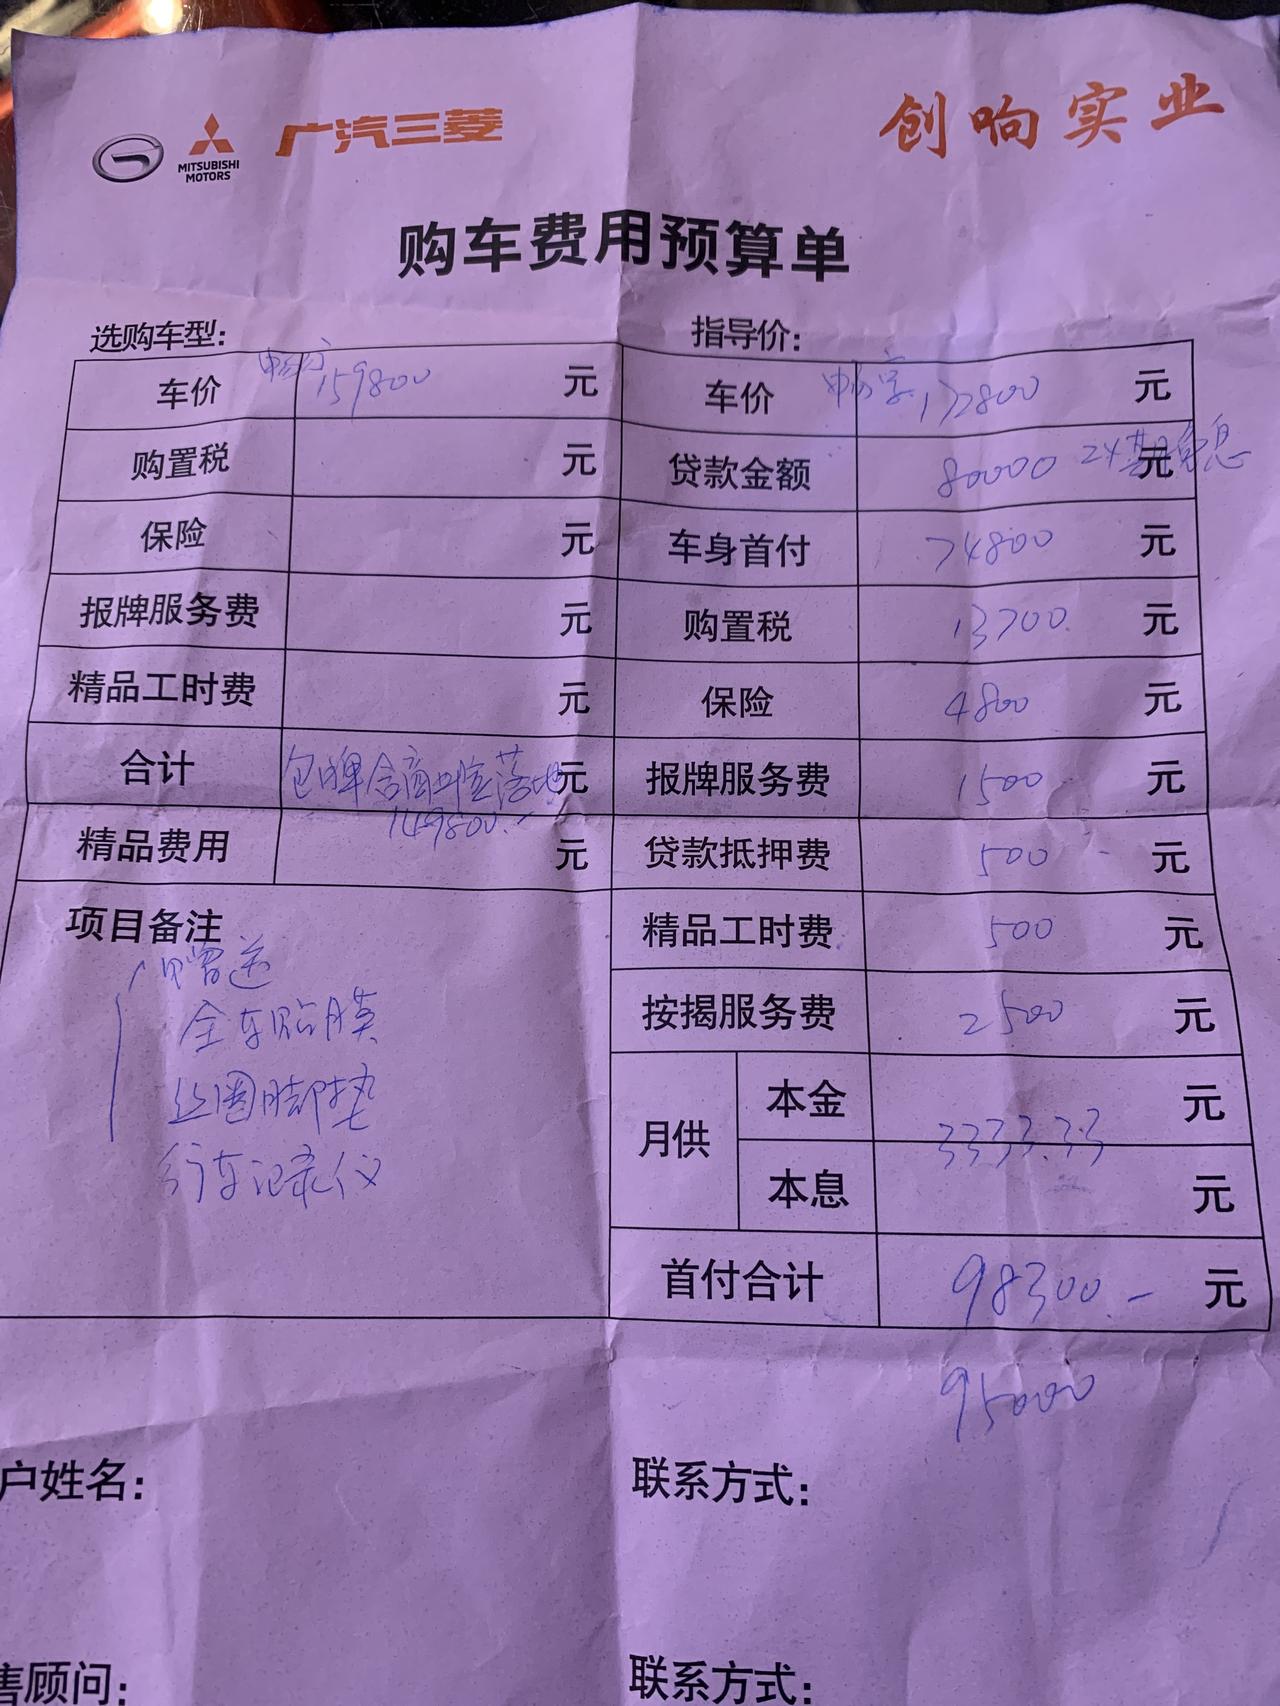 MITSUBISHI
MOTORS
广汽三菱
创响实业
购车费用预算单
选购车型:
指导价:
车价 159800 元
车价 畅享 172800 元
购置税 元
贷款金额 80000 元 24期免息
保险 元
车身首付 74800 元
报牌服务费 元
购置税 13700 元
精品工时费 元
保险 4800 元
合计 包牌含商业险落地 元
149800.-
报牌服务费 1500 元
精品费用 元
贷款抵押费 500 元
项目备注
精品工时费 500 元
赠送
全车贴膜
按揭服务费 2500 元
丝圈脚垫
月供 本金 元
3333.33
行车记录仪
本息 元
首付合计 98300.- 元
95000
户姓名:
联系方式:
售顾问:
联系方式: